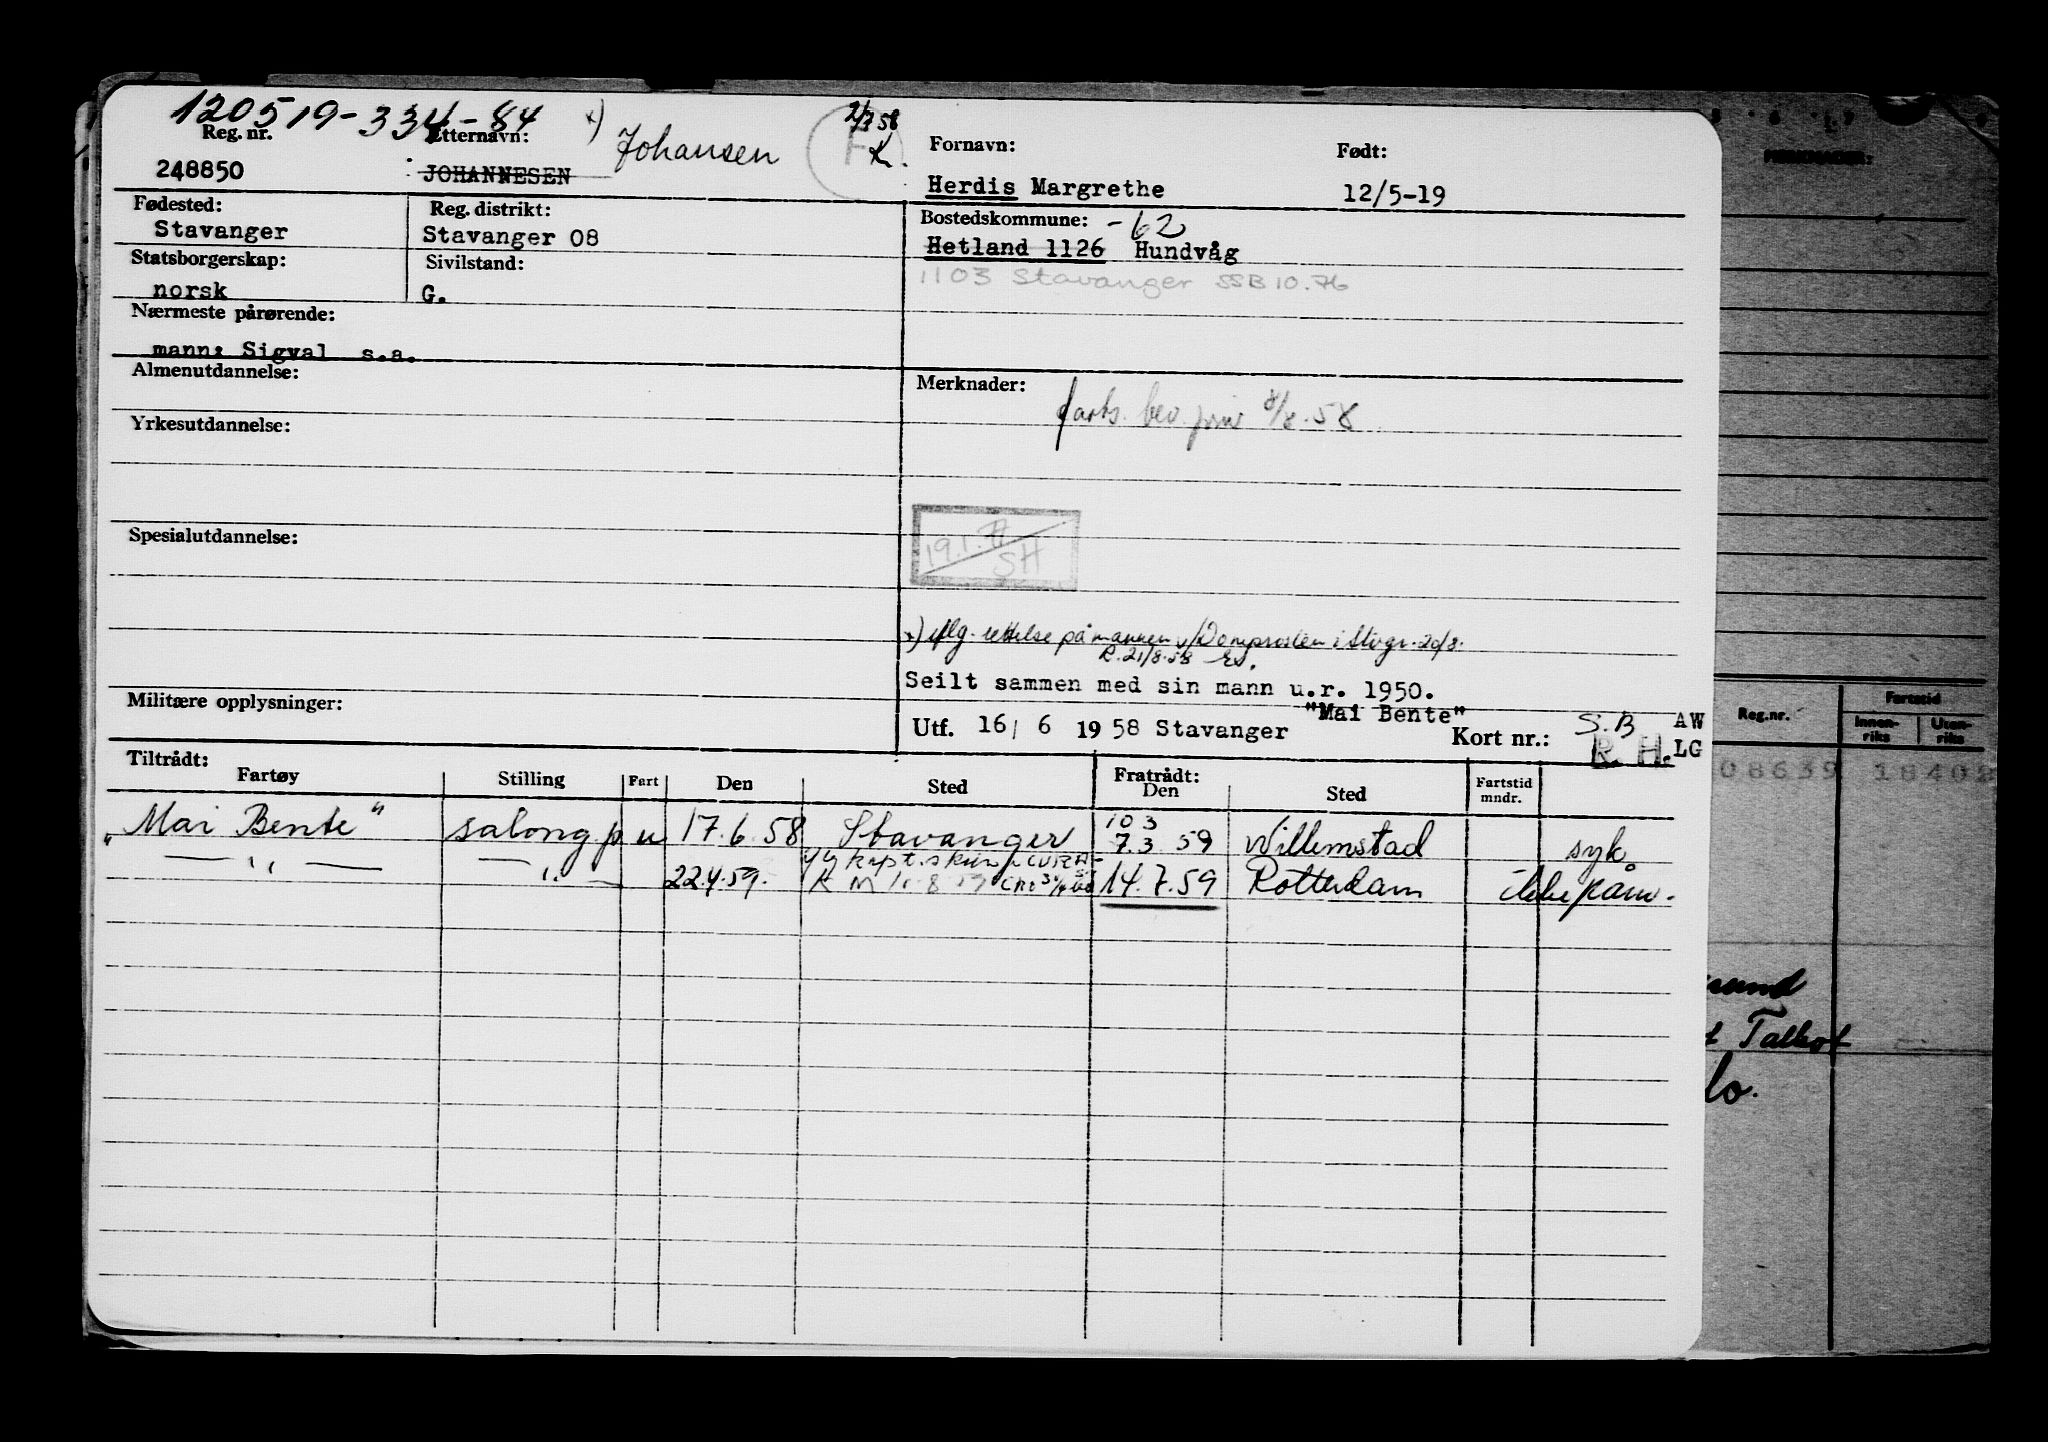 120519-334-84
Reg. nr. Etternavn: x) Johansen F 2/7 58 K. Fornavn: Født:
248850 JOHANNESEN Herdis Margrethe 12/5-19
Fødested: Reg. distrikt: Bostedskommune: -62
Stavanger Stavanger 08 Hetland 1126 Hundvåg
Statsborgerskap: Sivilstand: 1103 Stavanger SSB 10.76
norsk G.
Nærmeste pårørende:
mann: Sigval s.a.
Almenutdannelse: Merknader:
farts. bev. 58
Yrkesutdannelse:
Spesialutdannelse: 19.1.77
SH
x) iflg. rettelse på mannen v/Domprosten i Stvgr. 20/8.
R. 21/8-58
Seilt sammen med sin mann u.r. 1950.
Militære opplysninger: "Mai Bente"
Utf. 16/ 6 1958 Stavanger Kort nr.: S.B AW
R. H. LG
Tiltrådt: Fratrådt:
Fartøy Stilling Fart Den Sted Den Sted Fartstid mndr.
103
"Mai Bente" salong p. u 17.6.58 Stavanger 7.3 59 Willemstad syk.
— " — — " — 22.4.59. 14.7.59 Rotterdam ikke påm.
Reg.nr. Fartstid
Innen-riks Uten-riks
08639 18402
Talbot
lo.